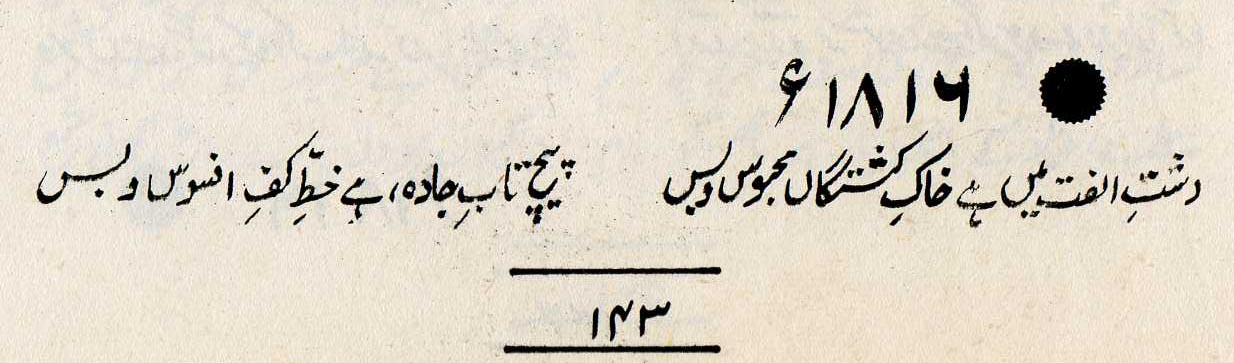 ۱۸۱۶ء
دشتِ الفت میں ہے خاکِ کشتگاں محبوس وبس پیچ تابِ جادہ، ہے خطِّ کفِ افسوس و بس
۱۴۳